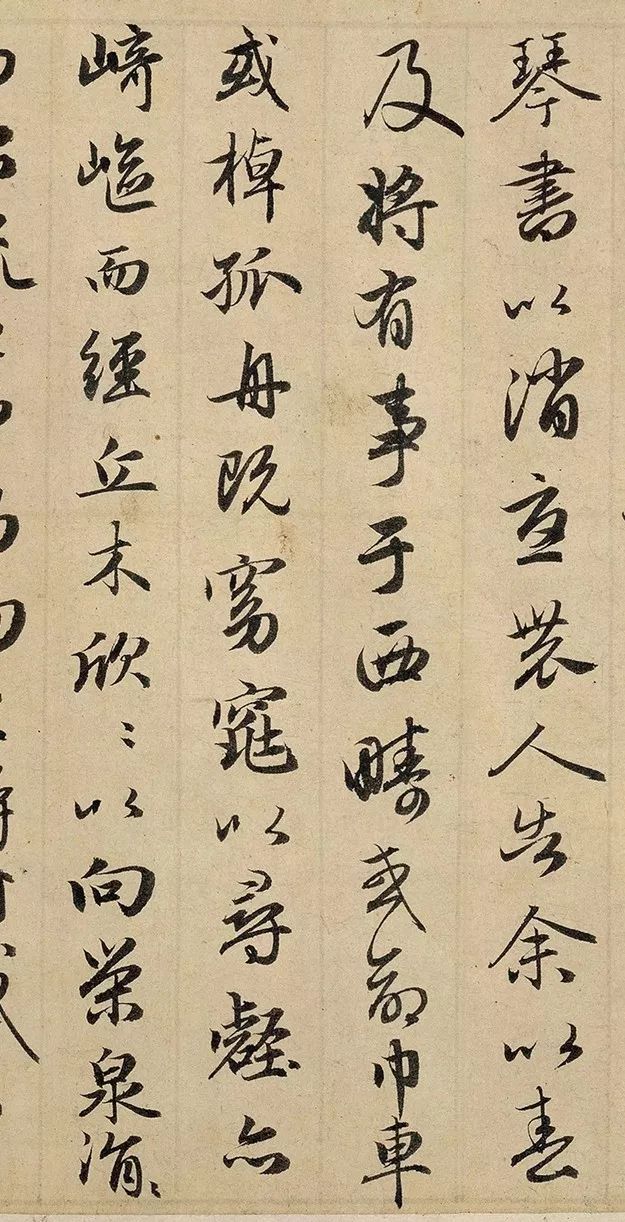 琴書以消憂農人告余以春
及將有事于西疇或命巾車
或棹孤舟既窈窕以尋壑亦
崎嶇而經丘木欣〻以向榮泉涓〻